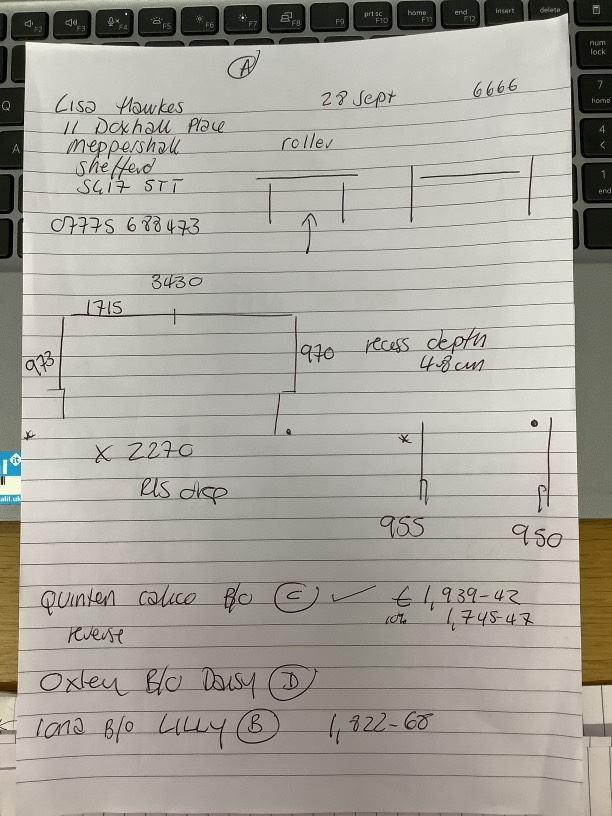 A
Lisa Hawkes
28 Sept
6666
11 Doxhall Place
Meppershall
Shefferd
SG17 5TT
roller
07775 688473
3430
1715
973
970
recess depth
48cm
x 2270
R/S drop
955
950
Quinten calico B/o C ✓ £ 1,939-42
reverse 10% 1,745-47
Oxley B/o Daisy D
Lana B/o LILLY B 1,822-68
prt sc
F10
home
F11
end
F12
insert
delete
num
lock
7
home
4
1
end
F2
F3
F4
F5
F6
F7
F8
F9
Q
A